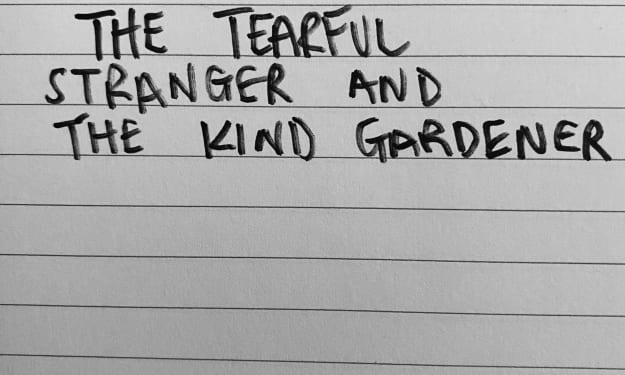 THE TEARFUL
STRANGER AND
THE KIND GARDENER